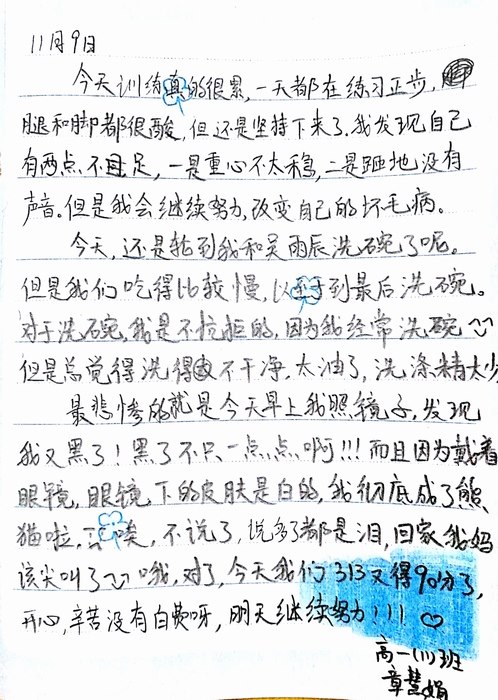 11月9日
今天训练真的很累,一天都在练习正步,
腿和脚都很酸,但还是坚持下来了,我发现自己
有两点不足,一是重心不太稳,二是踏地没有
声音。但是我会继续努力,改变自己的坏毛病。
今天,还是轮到我和吴雨辰洗碗了呢。
但是我们吃得比较慢,以至于到最后洗碗。
对于洗碗,我是不抗拒的,因为我经常洗碗
但是总觉得洗得不干净,太油了,洗涤精太少
最悲惨的就是今天早上我照镜子,发现
我又黑了!黑了不只一点点啊!!!而且因为戴着
眼镜,眼镜下的皮肤是白的,我彻底成了熊
猫啦,唉,不说了,说多了都是泪,回家我妈
该尖叫了 哦,对了,今天我们313又得90分了,
开心,辛苦没有白费呀,明天继续努力!!!
高一(11)班
章慧娟